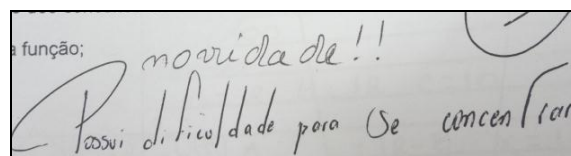 a função;
novidade!!
Possui dificuldade para se concentrar